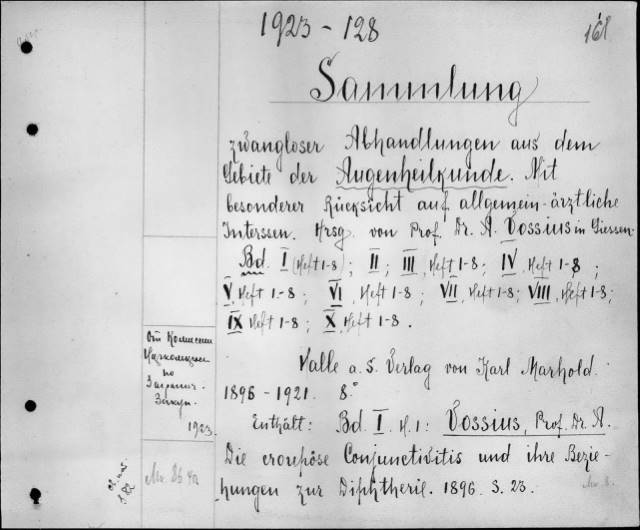 1923 - 128
168
Sammlung
zwangloser Abhandlungen aus dem
Gebiete der Augenheilkunde. Mit
besonderer Rücksicht auf allgemein-ärztliche
Interssen. Hrsg. von Prof. Dr. A. Vossius in Giessen
Bd. I (Heft 1-8); II; III, Heft 1-8; IV, Heft 1-8;
V, Heft 1-8; VI, Heft 1-8; VII, Heft 1-8; VIII, Heft 1-8;
IX Heft 1-8; X, Heft 1-8.
Halle a. S. Verlag von Karl Marhold.
1896 - 1921. 8°
Enthält: Bd. I. H. 1: Vossius, Prof. Dr. A.
Die croupöse Conjunctivitis und ihre Bezie-
hungen zur Diphtherie. 1896. S. 23.
От Комиссии
по
Загранич.
Закуп.
1923.